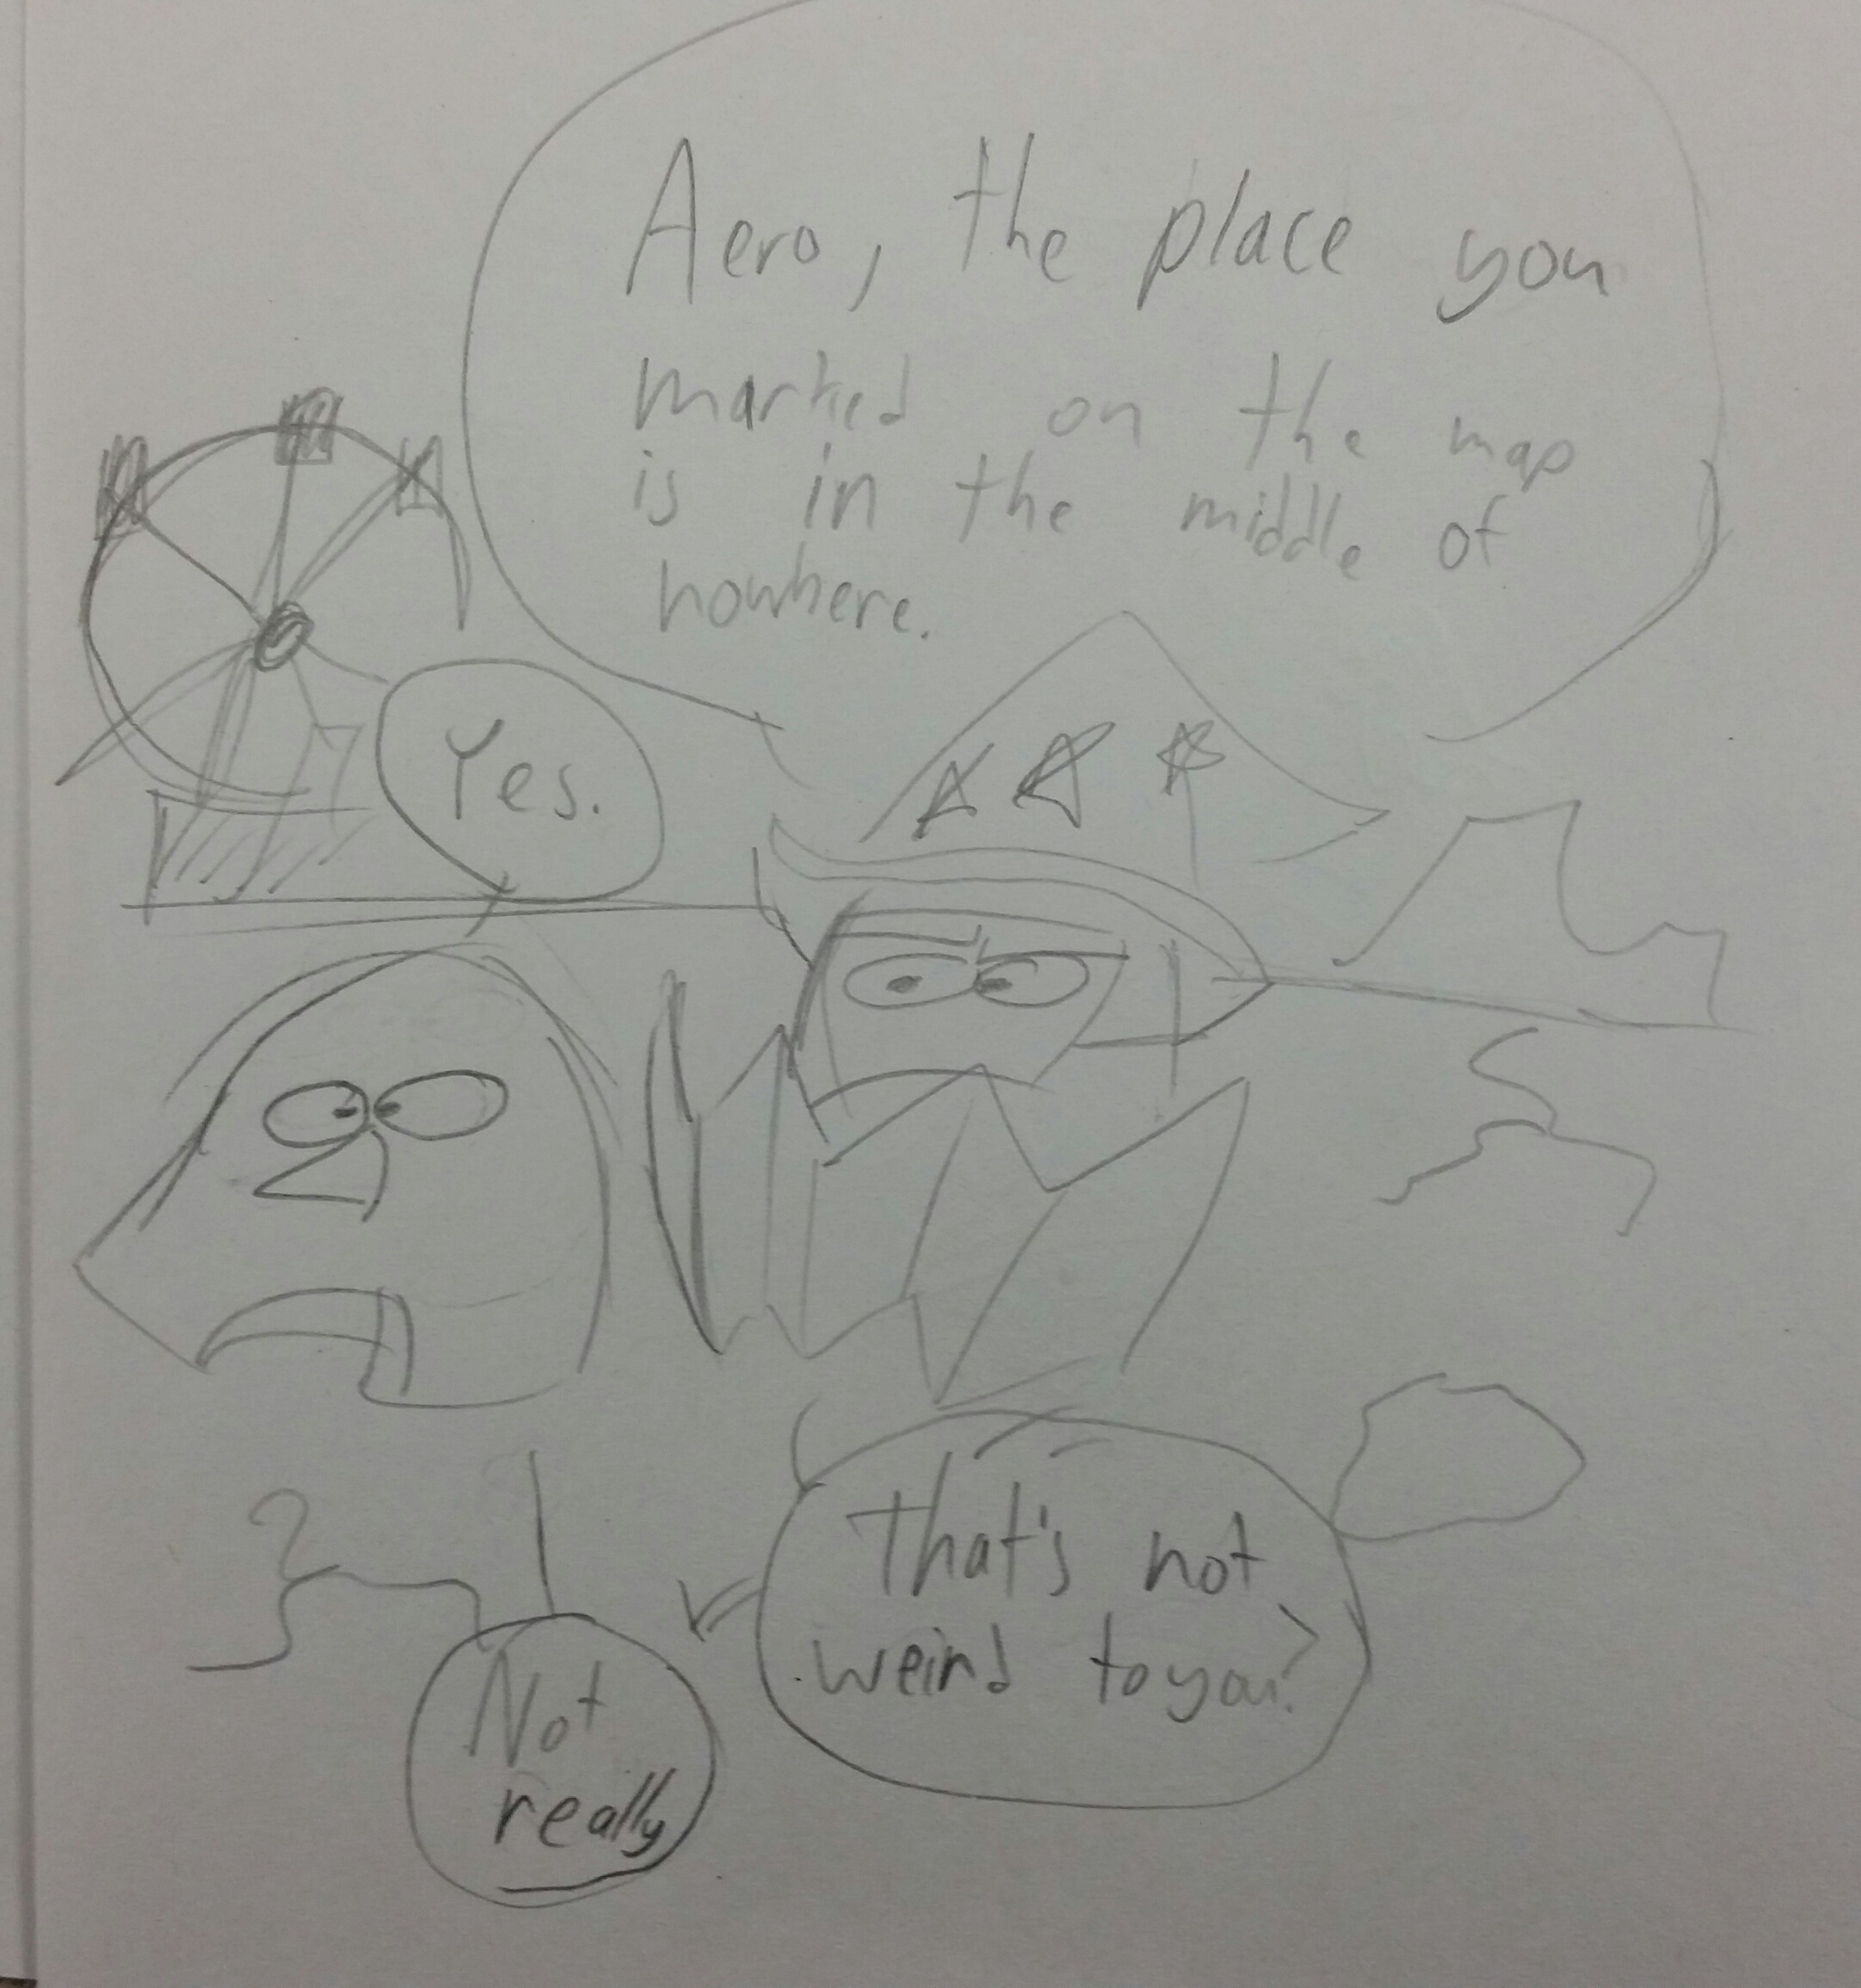 Aero, the place you
marked on the map
is in the middle of
nowhere.
Yes.
That's not
weird to you?
Not
really